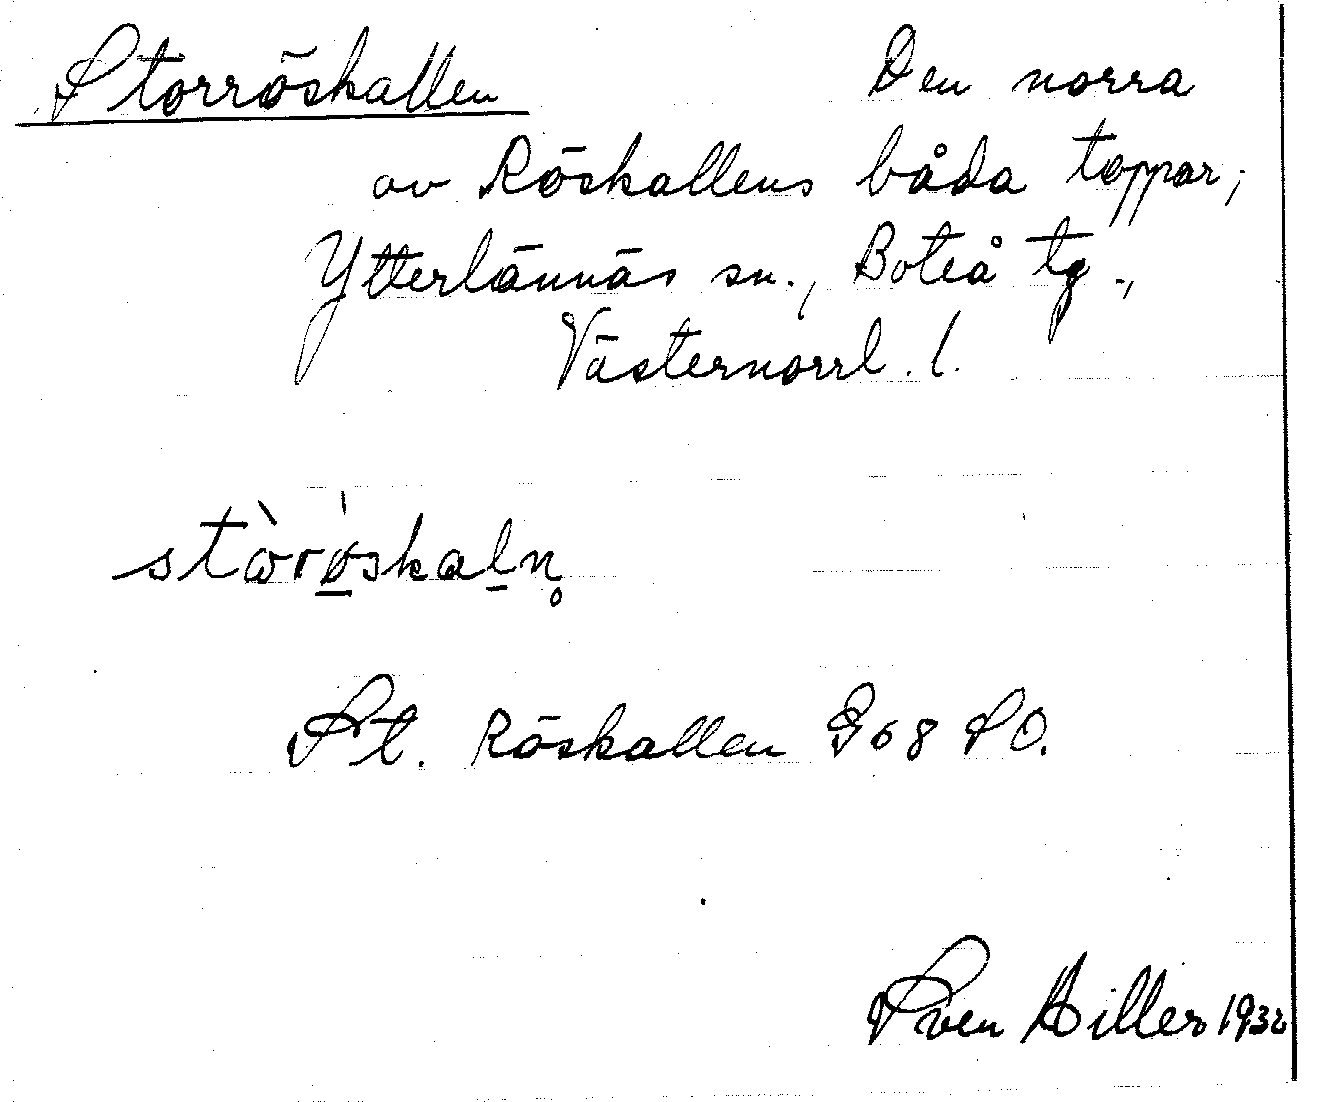 Storröskallen Den norra
av Röskallens båda toppar;
Ytterlännäs sn., Boteå tg.,
Västernorrl. l.
stòrǿ̲skal̲n̥
St. Röskallen G68 SO.
Sven Hiller 1932